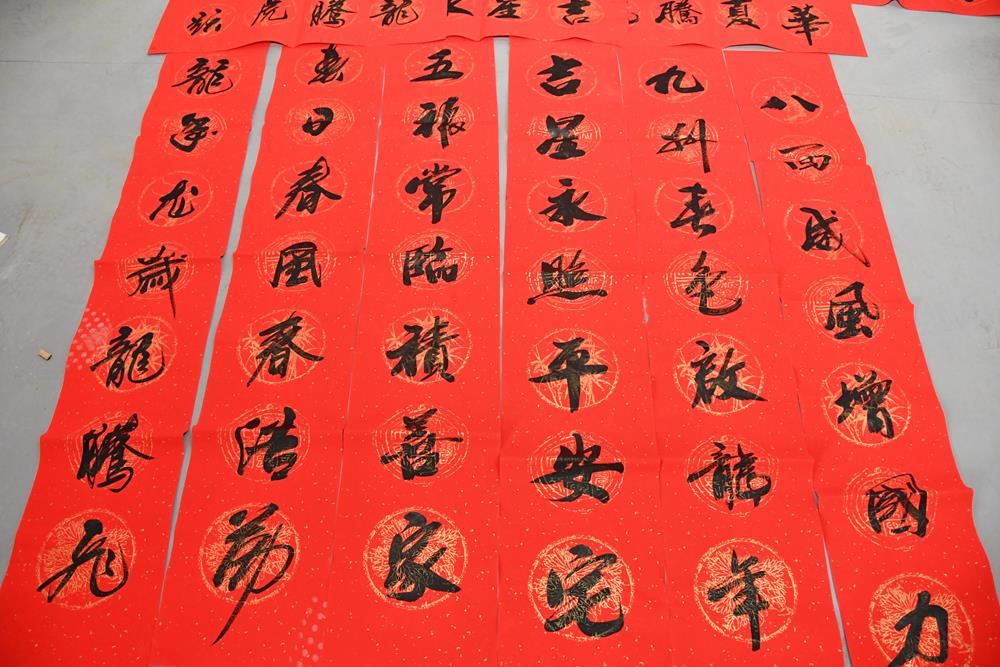 華夏騰
吉星
龍騰虎
八面威風增國力
九州春色啟龍年
吉星永照平安宅
五福常臨積善家
春日春風春浩蕩
龍年龙歲龍騰飛